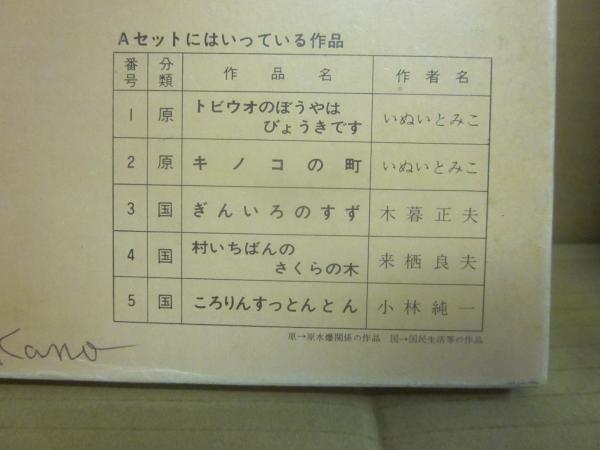 Aセットにはいっている作品
番号 分類 作品名 作者名
1 原 トビウオのぼうやは
びょうきです いぬいとみこ
2 原 キノコの町 いぬいとみこ
3 国 ぎんいろのすず 木暮正夫
4 国 村いちばんの
さくらの木 来栖良夫
5 国 ころりんすっとんとん 小林純一
原→原水爆関係の作品 国→国民生活等の作品
Kano